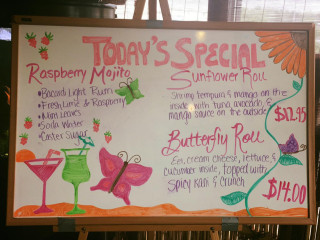 TODAY'S SPECIAL
Raspberry Mojito
• Bacardi Light Rum
• Fresh Lime & Raspberry
• Mint Leaves
• Soda Water
• Caster Sugar
Sunflower Roll
Shrimp tempura & mango on the
inside with tuna, avocado, &
mango sauce on the outside
$12.95
Butterfly Roll
Eel, cream cheese, lettuce, &
cucumber inside, topped with
spicy kani & crunch
$14.00